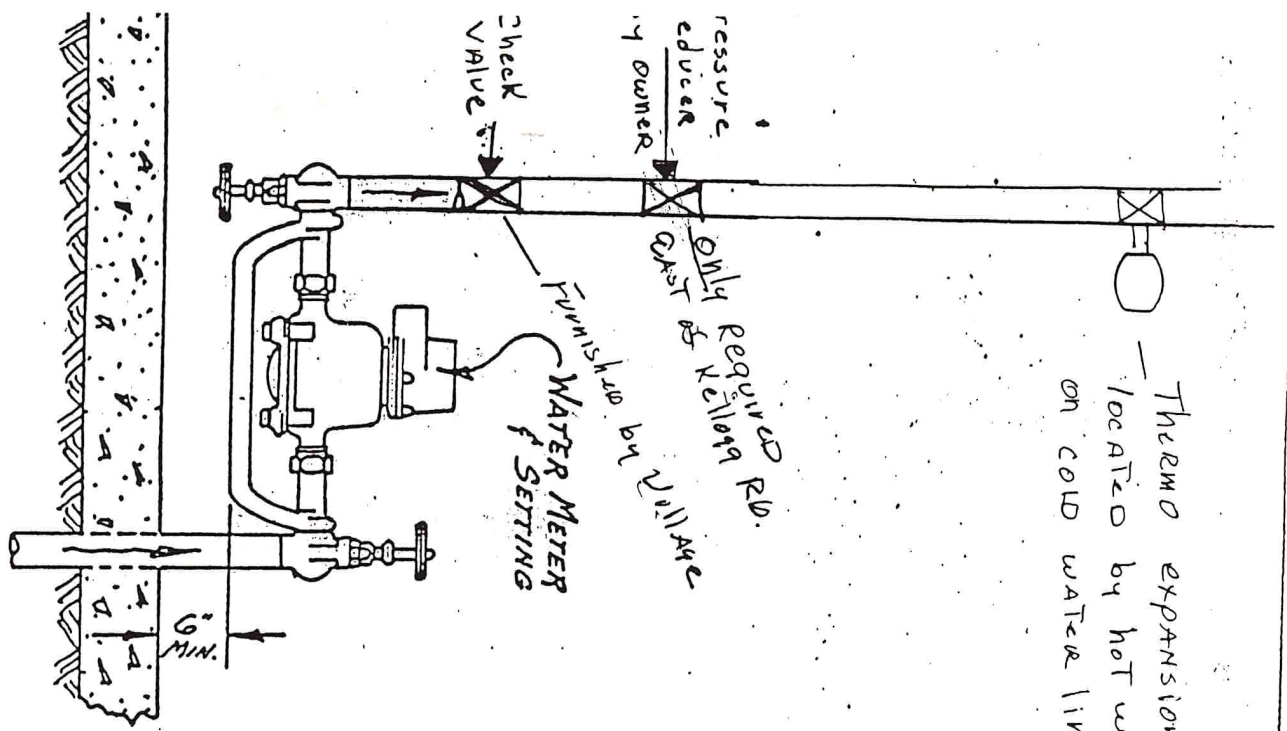 Thermo expansion
located by hot w
on cold water lin
ressure
educer
y owner
Only Required
East of Kellogg Rd.
Check
Valve
Furnished by Village
WATER METER
& SETTING
6"
MIN.